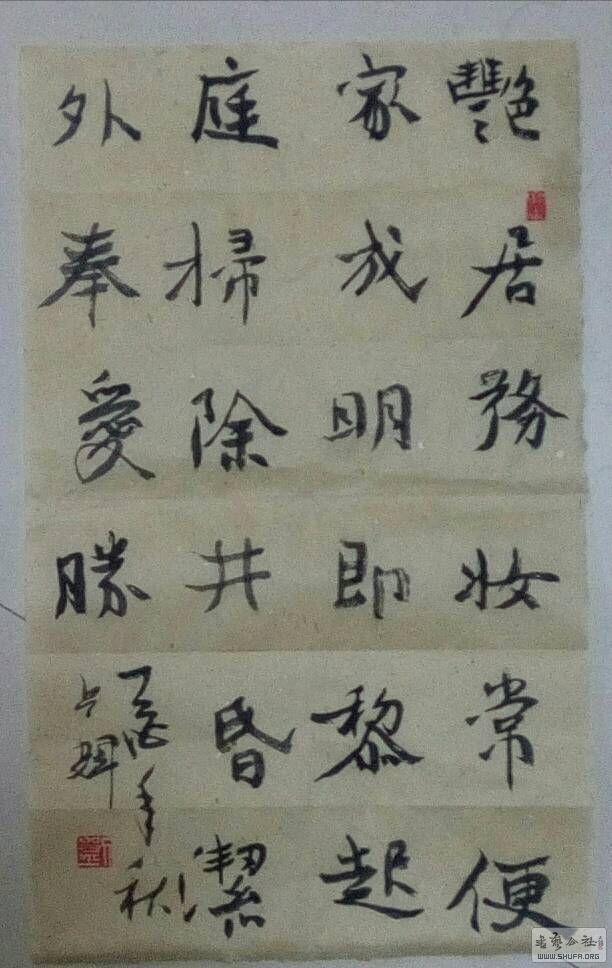 艷居務妝常便
家成明即黎起
庭掃除井昏潔
外奉愛勝
丁酉年秋
書藝公社
WWW.SHUFA.ORG